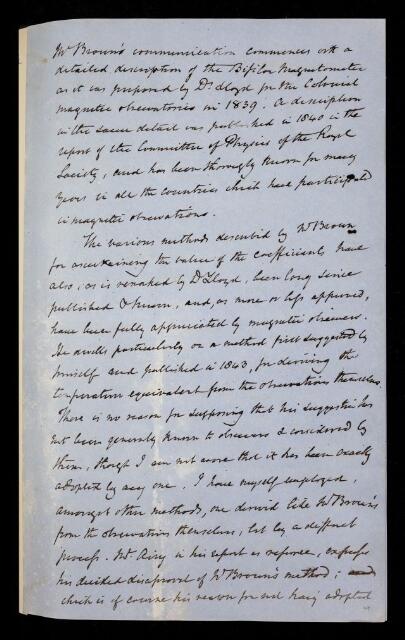 Mr Broun's communication commences with a
detailed description of the Bifilar Magnetometer
as it was proposed by Dr Lloyd for the Colonial
magnetic observatories in 1839. A description
in the same detail was published in 1840 in the
report of the Committee of Physics of the Royal
Society, and has been thoroughly known for many
years in all the countries which have participated
in magnetic observations.
The various methods described by Mr Broun
for ascertaining the value of the coefficients have
also, as is remarked by Dr Lloyd, been long since
published & known, and, as more or less approved,
have been fully appreciated by magnetic observers.
He dwells particularly on a method first suggested by
himself and published in 1843, for deriving the
temperature equivalent from the observations themselves.
There is no reason for supposing that his suggestion has
not been generally known to observers & considered by
them, though I am not aware that it has been exactly
adopted by any one. I have myself employed,
amongst other methods, one derived like Mr Broun's
from the observations themselves, but by a different
process. Mr Airy in his report as referee, expresses
his decided disapproval of Mr Broun's method; and
which is of course his reason for not having adopted